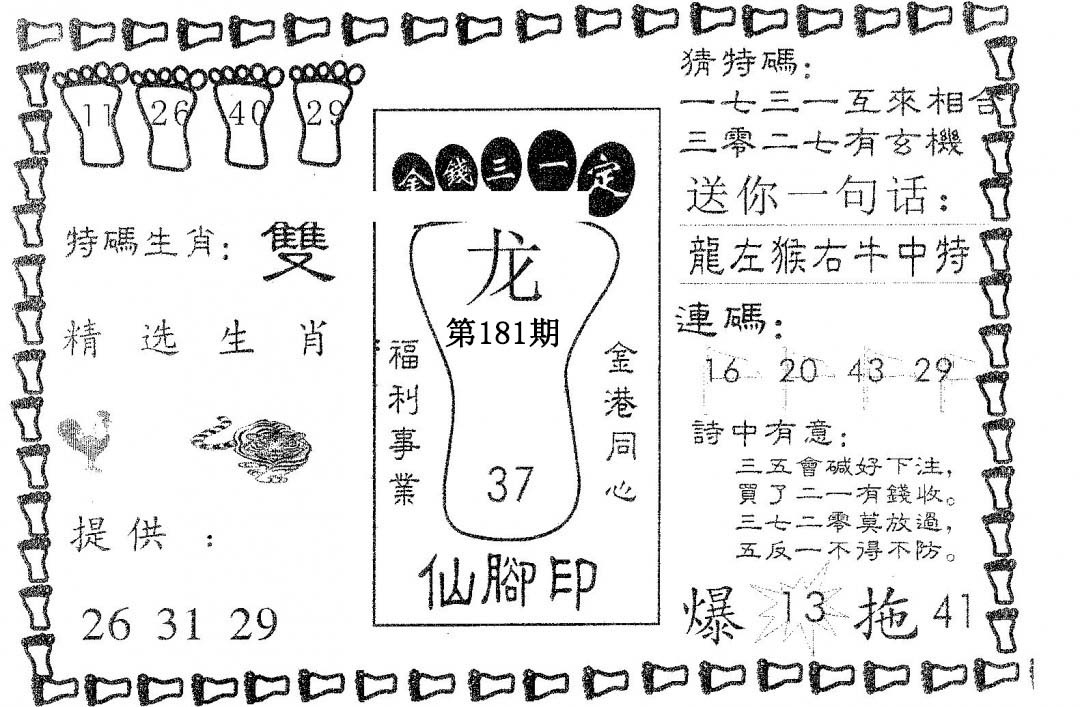 11 26 40 29
特碼生肖：雙
精选生肖
提供：
26 31 29
金錢三一定
龙
第181期
福利事業
金港同心
37
仙腳印
猜特碼：
一七三一互來相合
三零二七有玄機
送你一句话：
龍左猴右牛中特
連碼：
16 20 43 29
詩中有意：
三五會碱好下注，
買了二一有錢收。
三七二零莫放過，
五反一不得不防。
爆 13 拖 41